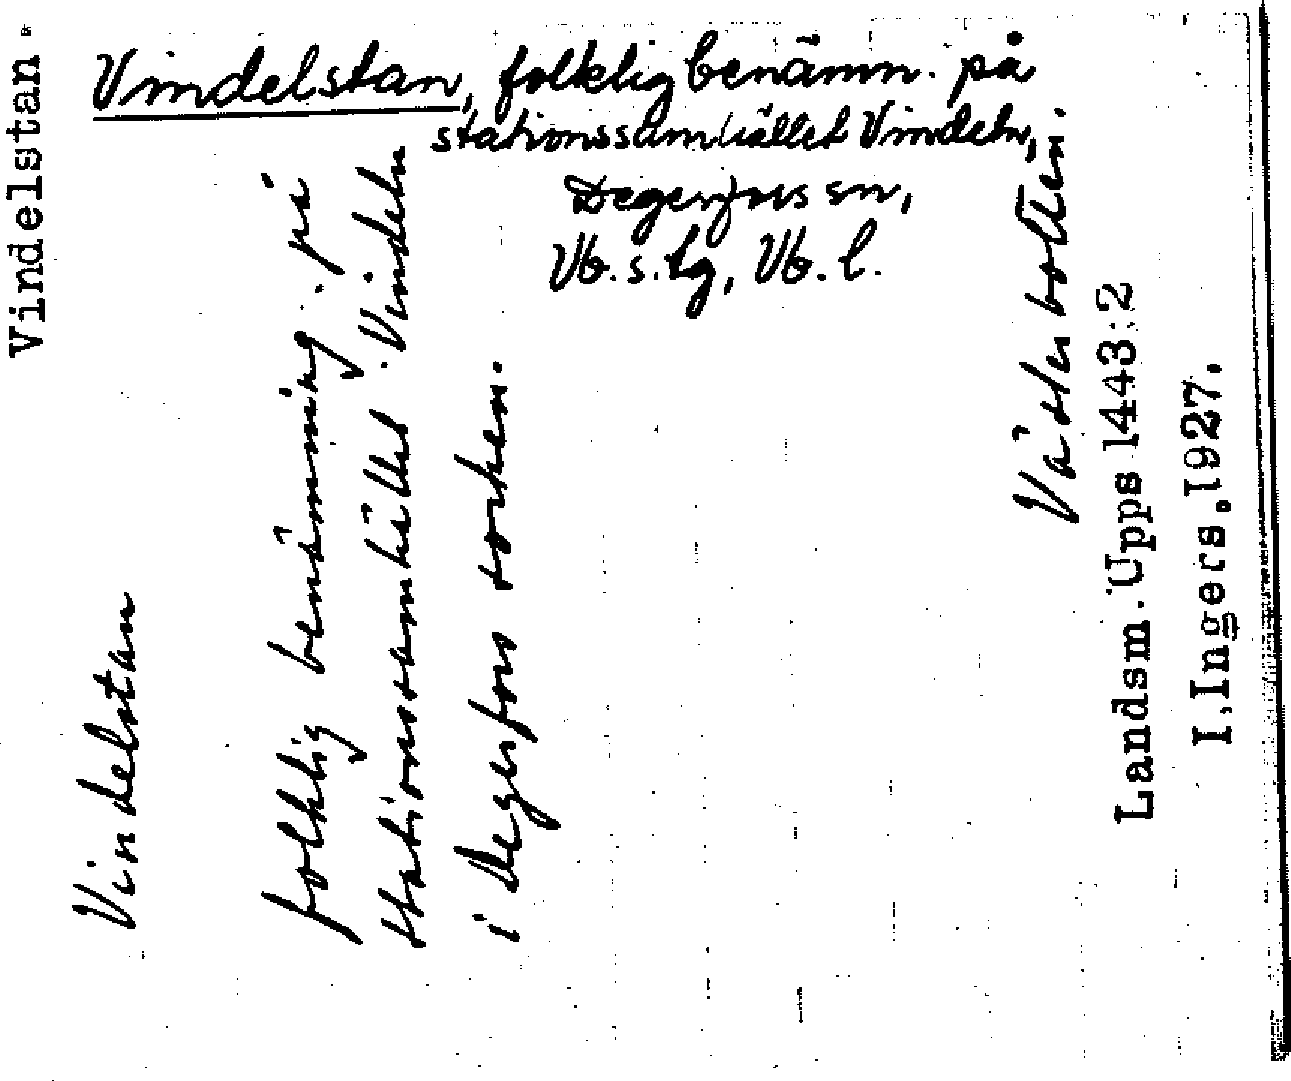 Vindelstan, folklig benämn. på
stationssamhället Vindeln,
Degerfors sn,
Vb. s. lg, Vb. l.
Vindelstan.
Vindelstan
folklig benämning på
stationssamhället Vindeln
i Degerfors socken.
Västerbotten.
Landsm. Upps 1443:2
I. Ingers. 1927.